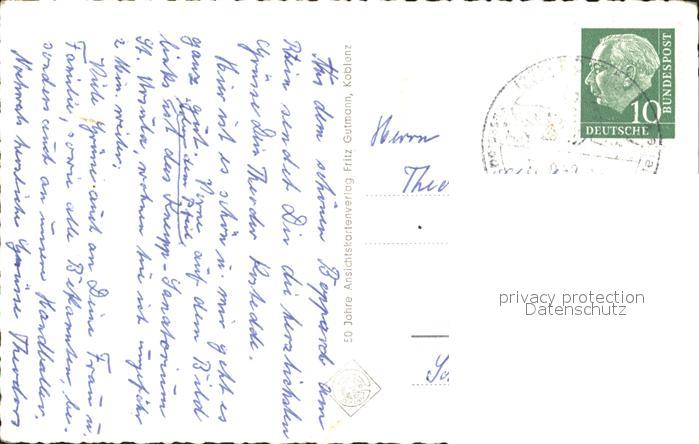 Aus dem schönen Boppard am
Rhein sendet Dir die herzlichsten
Grüsse Dein Theodor
Hier ist es schön u. mir geht es
ganz gut. Vorne auf dem Bild
links ist das Kneipp-Sanatorium
St. Ursula, wohnen tue ich ungefähr
2 Min weiter.
Viele Grüsse auch an Deine Frau u.
Familie, sowie alle Bekannten, be-
sonders auch an unsere Handballer.
Nochmals herzliche Grüsse Theodor
50 Jahre Ansichtskartenverlag Fritz Gutmann, Koblenz
Herrn
Theo
DEUTSCHE
BUNDESPOST
10
privacy protection
Datenschutz